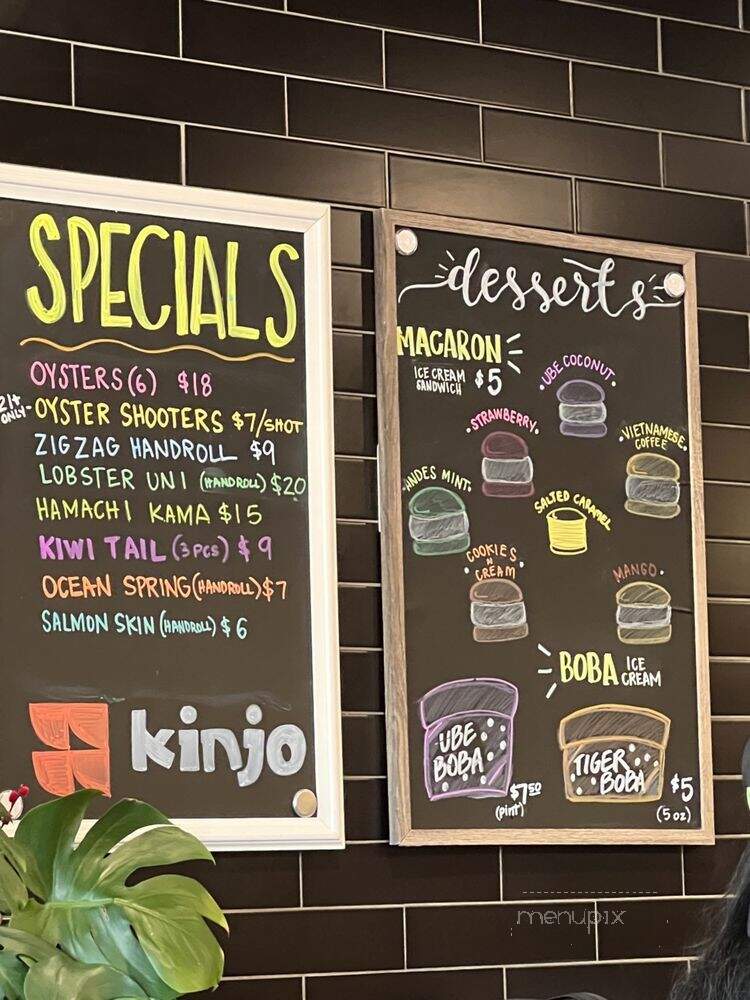 SPECIALS
OYSTERS (6) $18
21+ ONLY - OYSTER SHOOTERS $7/SHOT
ZIGZAG HANDROLL $9
LOBSTER UNI (HANDROLL) $20
HAMACHI KAMA $15
KIWI TAIL (3PCS) $9
OCEAN SPRING (HANDROLL) $7
SALMON SKIN (HANDROLL) $6
kinjo
desserts
MACARON
ICE CREAM
SANDWICH $5
UBE COCONUT
STRAWBERRY
VIETNAMESE
COFFEE
ANDES MINT
SALTED CARAMEL
COOKIES
N
CREAM
MANGO
BOBA ICE
CREAM
UBE
BOBA
$7.50
(pint)
TIGER
BOBA
$5
(5 oz)
menupix